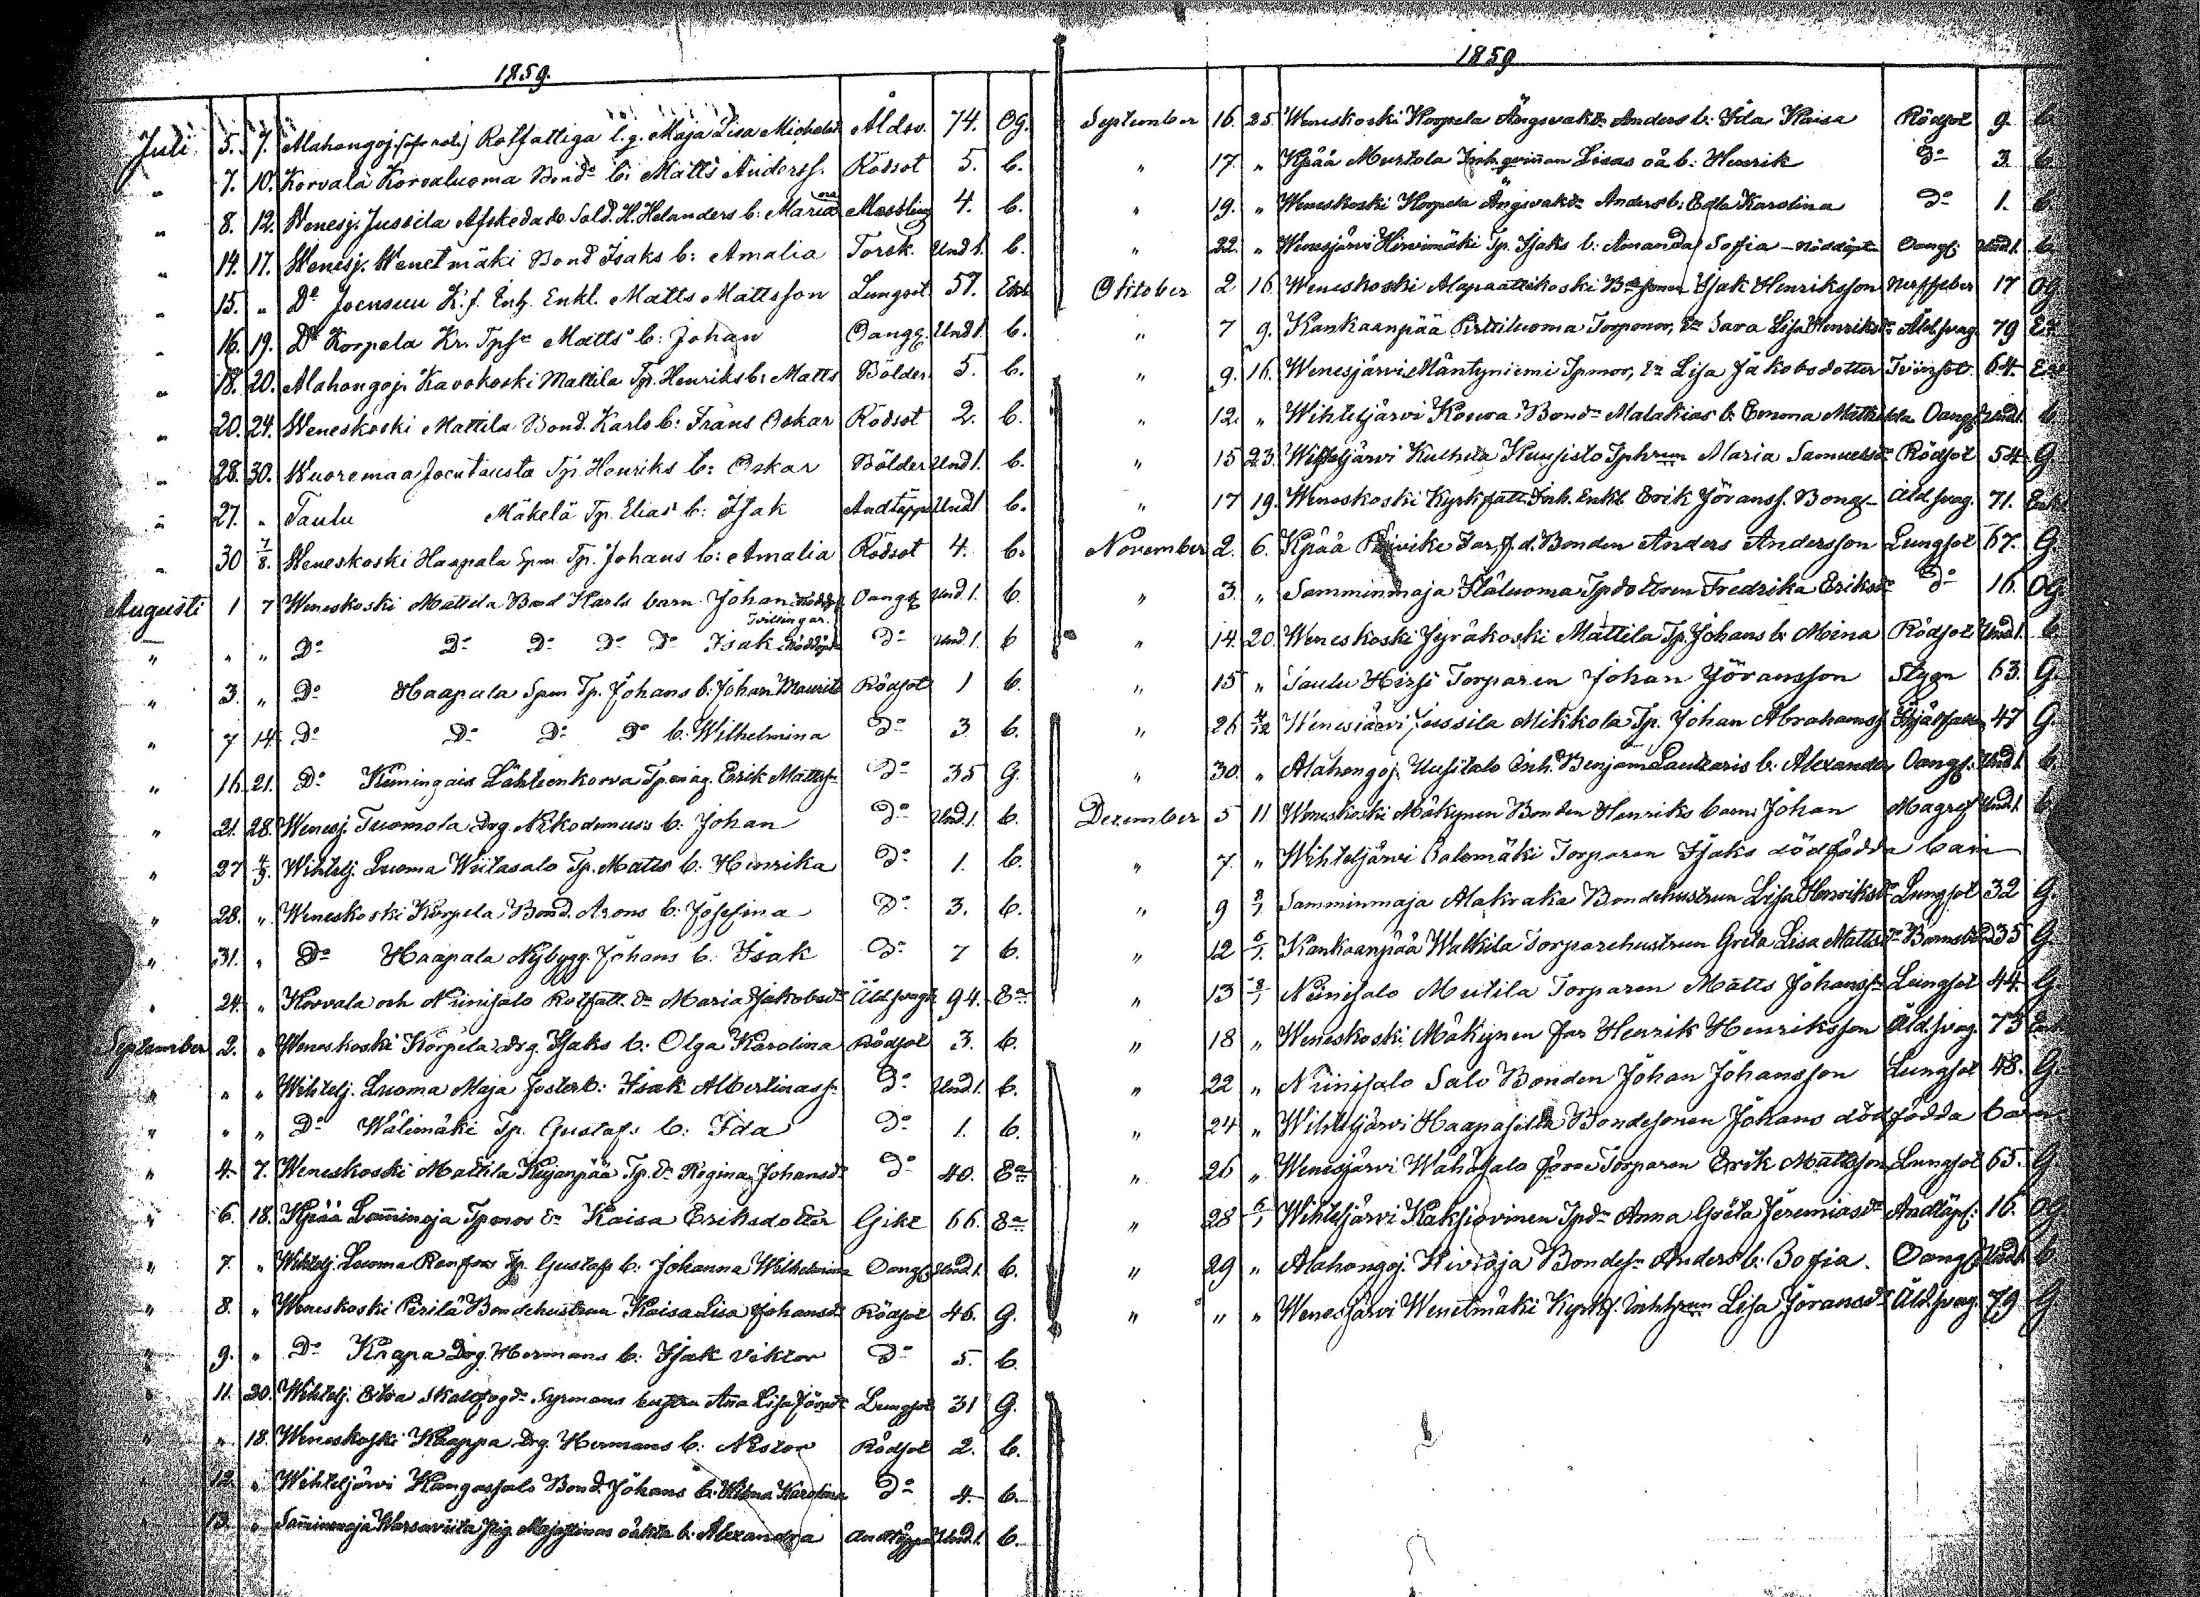 1859.
Juli 5. 7. Alahongoj. (sofr rot.) Rotfattiga l. g. Maja Lisa Michelsd Åldsv. 74. Og.
" 7. 10. Korvala Korvaluoma Bond. b: Matts Anderss. Rödsot 5. b.
" 8. 12. Wenesj. Jussila Afskedade Sold. H. Helanders b: Maria Messling 4. b.
" 14. 17. Wenesj. Wenetmäki Bond Isaks b: Amalia Torsk. Und 1. b.
" 15. " Do Joensuu K. f. Inh. Enkl. Matts Mattsson Lungsot 57. Enkl
" 16. 19. Do Korpela Kr. Tpsn Matts b: Johan Oangf. Und 1. b.
" 18. 20. Alahongoj. Kavokoski Mattila Tp. Henriks b: Matts Bölder 5. b.
" 20. 24. Weneskoski Mattila Bond. Karls b: Frans Oskar Rödsot 2. b.
" 28. 30. Kuoremaa Jocutausta Tp. Henriks b: Oskar Bölder Und 1. b.
" 27. " Taulu Mäkelä Tp. Elias b: Isak Andtäppa Und 1. b.
" 30 7/8. Weneskoski Haapala Spm Tp. Johans b: Amalia Rödsot 4. b.
Augusti 1 7 Weneskoski Mattila Bond Karls barn Johan Nöddöpt Oangf Und 1. b.
Tvillingar.
" " " Do Do Do Do Do Isak Nöddöpt Do Und 1. b
" 3. " Do Haapala Spm Tp. Johans b: Johan Maurits Rödsot 1 b.
" 7 14 Do Do Do Do b. Wilhelmina Do 3 b.
" 16. 21. Do Kuningais Lähteenkorva Tpmag. Erik Mattss. Do 35 G.
" 21. 28. Wenesj. Tuomola Drg Nikodemus's b: Johan Do Und 1. b.
" 27 4/9. Wihtelj. Luoma Wiitasalo Tp. Matts b: Henrika Do 1. b.
" 28. " Weneskoski Korpela Bond. Arons b: Josefina Do 3. b.
" 31. " Do Haapala Nybygg. Johans b: Isak Do 7 b.
" 24. " Korvala och Niinisalo Rotfatt. Da Maria Jakobsdr Åld svagh. 94. Ea
September 2. " Weneskoski Korpela Drg. Isaks b: Olga Karolina Rödsot 3. b.
" " " Wihtelj. Luoma Maja Fosterb: Isak Albertinass. Do Und 1. b.
" " " Do Wälimäki Tp. Gustafs b: Ida Do 1. b.
" 4. 7. Weneskoski Mattila Kujanpää Tp. Ea Regina Johansdr Do 40. Ea
" 6. 18. Kpää Lamminoja Tpmor Ea Kaisa Eriksdotter Gikt 66. Ea
" 7. " Wihtelj. Luoma Renfors Tp. Gustafs b: Johanna Wilhelmina Oangf Und 1. b.
" 8. " Weneskoski Perilä Bondehustrun Kaisa Lisa Johansdr Rödsot 46. G.
" 9. " Do Kaapa Drg. Hermans b: Isak Viktor Do 5. b.
" 11. 20. Wihtelj. Eitva Skallfogd. Nyrmans hustru Anna Lisa Jörandr Lungsot 31 G.
" " 18. Weneskoski Kaappa Drg. Hermans b: Nestor Rödsot 2. b.
" 12. " Wihteljärvi Kangassalo Bond. Johans b: Wilma Karolina Do 4. b.
" 13. " Samminmaja Warsaviita Pig. Majastinas oäkta b: Alexandra Andtäppa Und 1. b.
1859
September 16. 25 Weneskoski Korpela Ängsvakt. Anders b: Ida Kaisa Rödsot 9. b.
" 17. " Kpää Murtola Inh. qvinnan Lisas oä b: Henrik Do 3. b.
" 19. " Weneskoski Korpela Ängsvakt. Anders b: Edla Karolina Do 1. b
" 22. " Wenesjärvi Hirvimäki Tp. Isaks b: Amanda Sofia - Nöddöpt Oangf. Und 1. b.
Oktober 2 16 Weneskoski Alapaattikoski Bdesonen Isak Henriksson Nerffeber 17 Og.
" 7 9. Kankaanpää Perttiluoma Torpmor, Ea Sara Lisa Henriksdr Åld. svag. 79 Ea
" 9. 16. Wenesjärvi Mäntyniemi Tpmor, Ea Lisa Jakobsdotter Tvinsot. 64. Ea
" 12. " Wihteljärvi Koura Bond. Malakias b. Emma Matilda Oangf Und 1. b
" 15 23. Wihteljärvi Kulhela Kuusisto Tphrun Maria Samuelsdr Rödsot 54 G.
" 17 19. Weneskoski Kyrkfatt. Inh. Enkl Erik Jöranss. Bong Åld svag. 71. Enkl
November 2. 6. Kpää Päivike Far, f. d. Bonden Anders Andersson Lungsot 67. G.
" 3. " Samminmaja Italuoma Tpdottren Fredrika Eriksdr Do 16. Og.
" 14. 20. Weneskoski Jyräkoski Mattila Tp. Johans b. Moina Rödsot Und 1. b.
" 15 " Taulu Hirsi Torparen Johan Jöransson Stygn 63. G.
" 26 4/12 Wenesjärvi Jussila Mikkola Tp. Johan Abrahamss. 47 G.
" 30. " Alahongoj. Uusitalo Inh. Benjam. Lautaris b: Alexander Oangf. Und 1. b.
December 5 11 Weneskoski Mäkynen Bonden Henriks barn Johan Magref Und 1. b.
" 7. " Wihteljärvi Palomäki Torparen Isaks dödfödda barn
" 9 8/1 Samminmaja Alakraka Bondehustrun Lisa Henriksdr Lungsot 32 G.
" 12 6/1 Kankaanpää Wallila Torparehustrun Greta Lisa Mattsdr Barnsbörd 35 G.
" 13 8/1 Niinisalo Meutila Torparen Matts Johanss. Lungsot 44. G.
" 18 " Weneskoski Mäkynen Far Henrik Henriksson Åld. svag. 73 Enkl
" 22 " Niinisalo Salo Bonden Johan Johansson Lungsot 48. G.
" 24 " Wihteljärvi Haapasilta Bondesonen Johans dödfödda barn
" 26 " Wenesjärvi Wähäsalo förre Torparen Erik Mattsson Lungsot 65. G
" 28 6/1 Wihteljärvi Kaksiovinen Tpdr Anna Greta Jeremiasdr Andtäpp. 16. Og
" 29 " Alahongoj. Kivioja Bondesn Anders b: Sofia. Oangf Und 1. b
" " " Wenesjärvi Wenetmäki Kyrkf. Inhhrun Lisa Jöransdr Åld. svag. 79 G